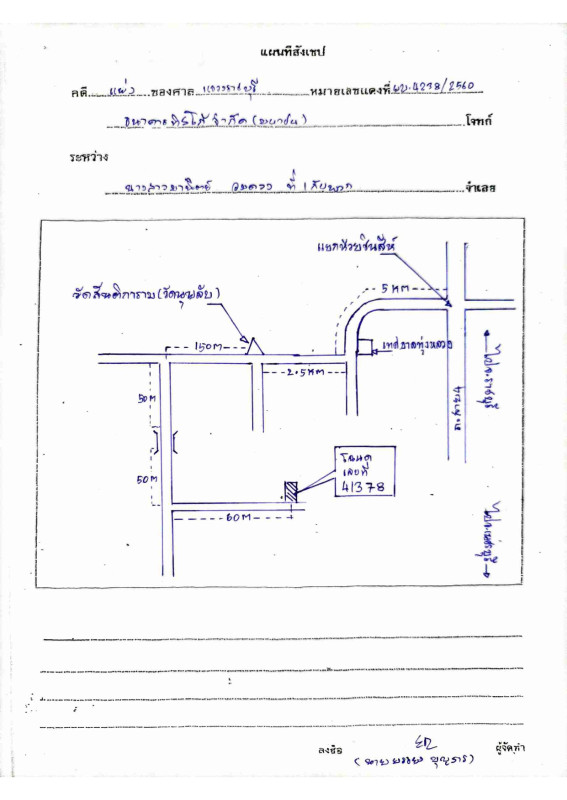 แผนที่สังเขป
คดี แพ่ง ของศาล แขวงราชบุรี หมายเลขแดงที่ ผบ.4238/2560
ธนาคารทิสโก้ จำกัด (มหาชน) โจทก์
ระหว่าง
นางสาว ที่ 1 กับพวก จำเลย
แยกห้วยชินสีห์
5 KM
วัดสันติการาม (วัดหุบพลับ)
150 M
เทศบาลทุ่งหลวง
2.5 KM
ไปจ.ราชบุรี
ถ.เพชรเกษม
50 M
50 M
โฉนด
เลขที่
41378
60 M
ไปจ.เพชรบุรี
ลงชื่อ ผู้จัดทำ
(นาย บุญธาร)